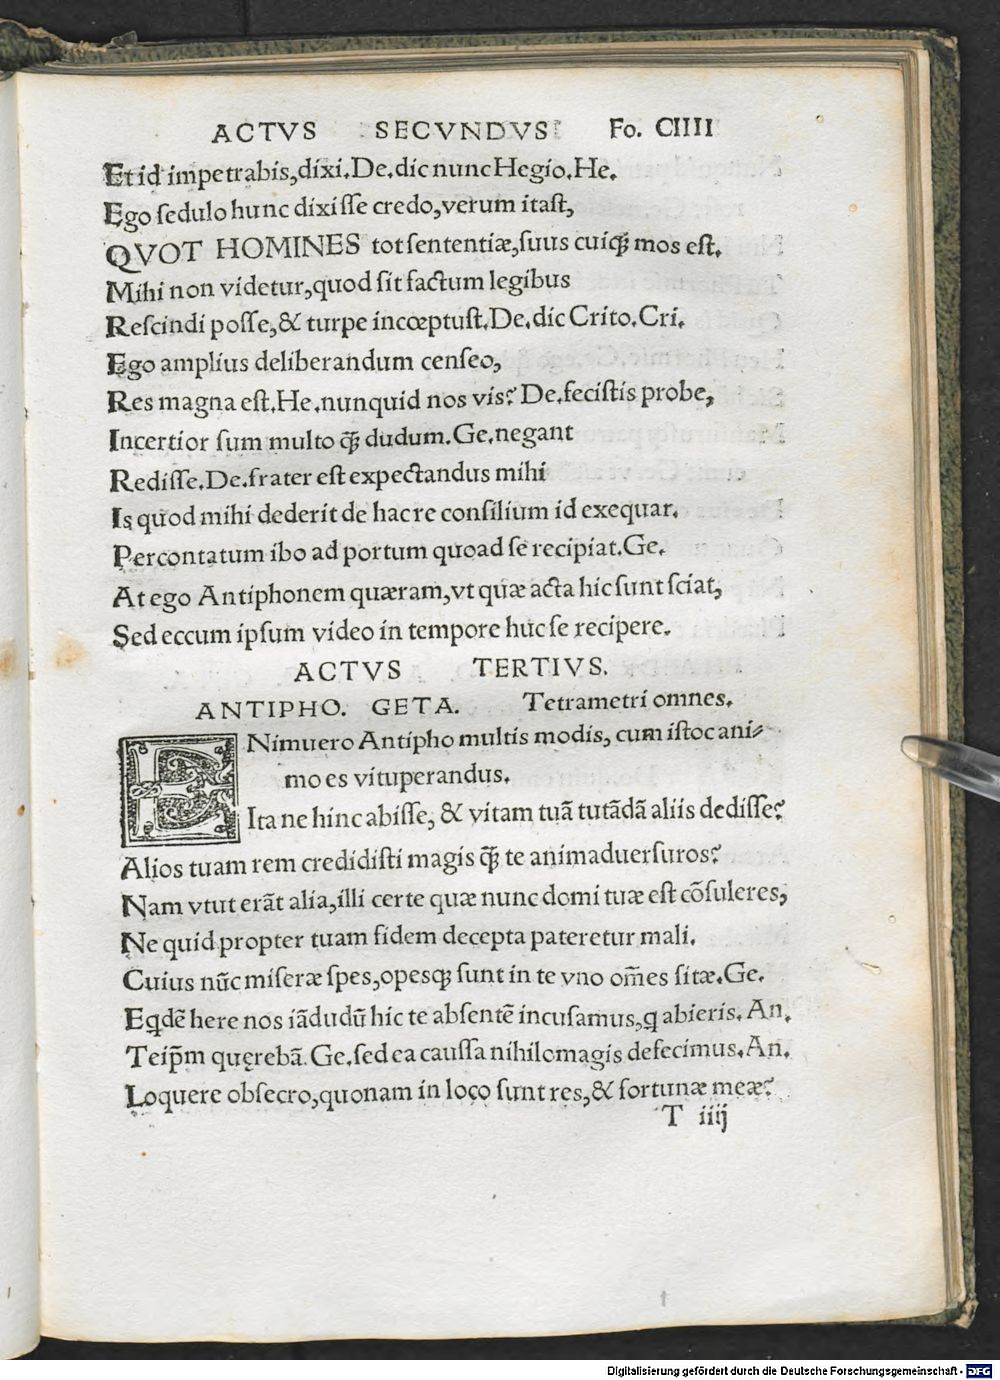 ACTVS SECVNDVS Fo. CIIII
Et id impetrabis, dixi. De. dic nunc Hegio. He.
Ego sedulo hunc dixisse credo, verum itast,
QVOT HOMINES tot sententiæ, suus cuiq̃ mos est.
Mihi non videtur, quod sit factum legibus
Rescindi posse, & turpe incœptust. De. dic Crito. Cri.
Ego amplius deliberandum censeo,
Res magna est. He. nunquid nos vis? De. fecistis probe,
Incertior sum multo q̃ dudum. Ge. negant
Redisse. De. frater est expectandus mihi
Is quod mihi dederit de hac re consilium id exequar.
Percontatum ibo ad portum quoad se recipiat. Ge.
At ego Antiphonem quæram, vt quæ acta hic sunt sciat,
Sed eccum ipsum video in tempore huc se recipere.
ACTVS TERTIVS.
ANTIPHO. GETA. Tetrametri omnes.
ENimuero Antipho multis modis, cum istoc ani⸗
mo es vituperandus.
Ita ne hinc abisse, & vitam tuã tutãdã aliis dedisse?
Alios tuam rem credidisti magis q̃ te animaduersuros?
Nam vtut erãt alia, illi certe quæ nunc domi tuæ est cõsuleres,
Ne quid propter tuam fidem decepta pateretur mali.
Cuius nũc miseræ spes, opesq; sunt in te vno om̃es sitæ. Ge.
Eqdẽ here nos iãdudũ hic te absentẽ incusamus, q abieris. An.
Teip̃m quęrebã. Ge. sed ea caussa nihilo magis defecimus. An.
Loquere obsecro, quonam in loco sunt res, & fortunæ meæ?
T iiij
Digitalisierung gefördert durch die Deutsche Forschungsgemeinschaft - DFG